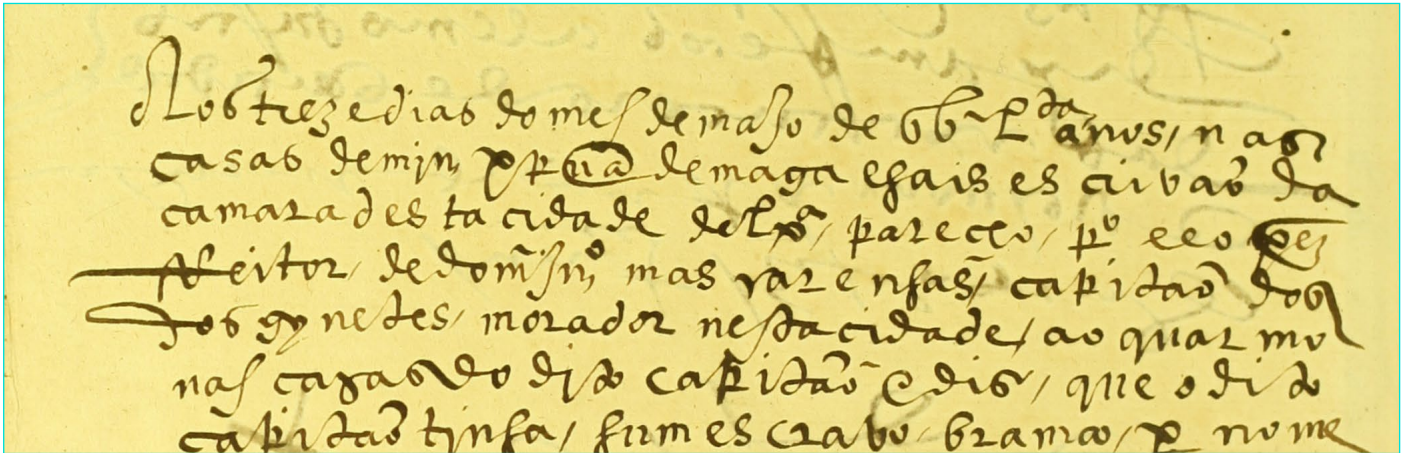 Aos treze dias do mes de maio de bᶜ Lᵗᵃ anos, nas
casas de min xpvã de magalhais escrivaõ da
camara desta cidade de lxᵃ, pareceo, pº
feitor, de dom jmº mascarenhas, capitaõ dos
dos gynetes, morador nesta cidade, ao quar mo
nas casas do dito capitaõ e dis, que o dito
capitaõ tinha, hum escravo bramco, p nome